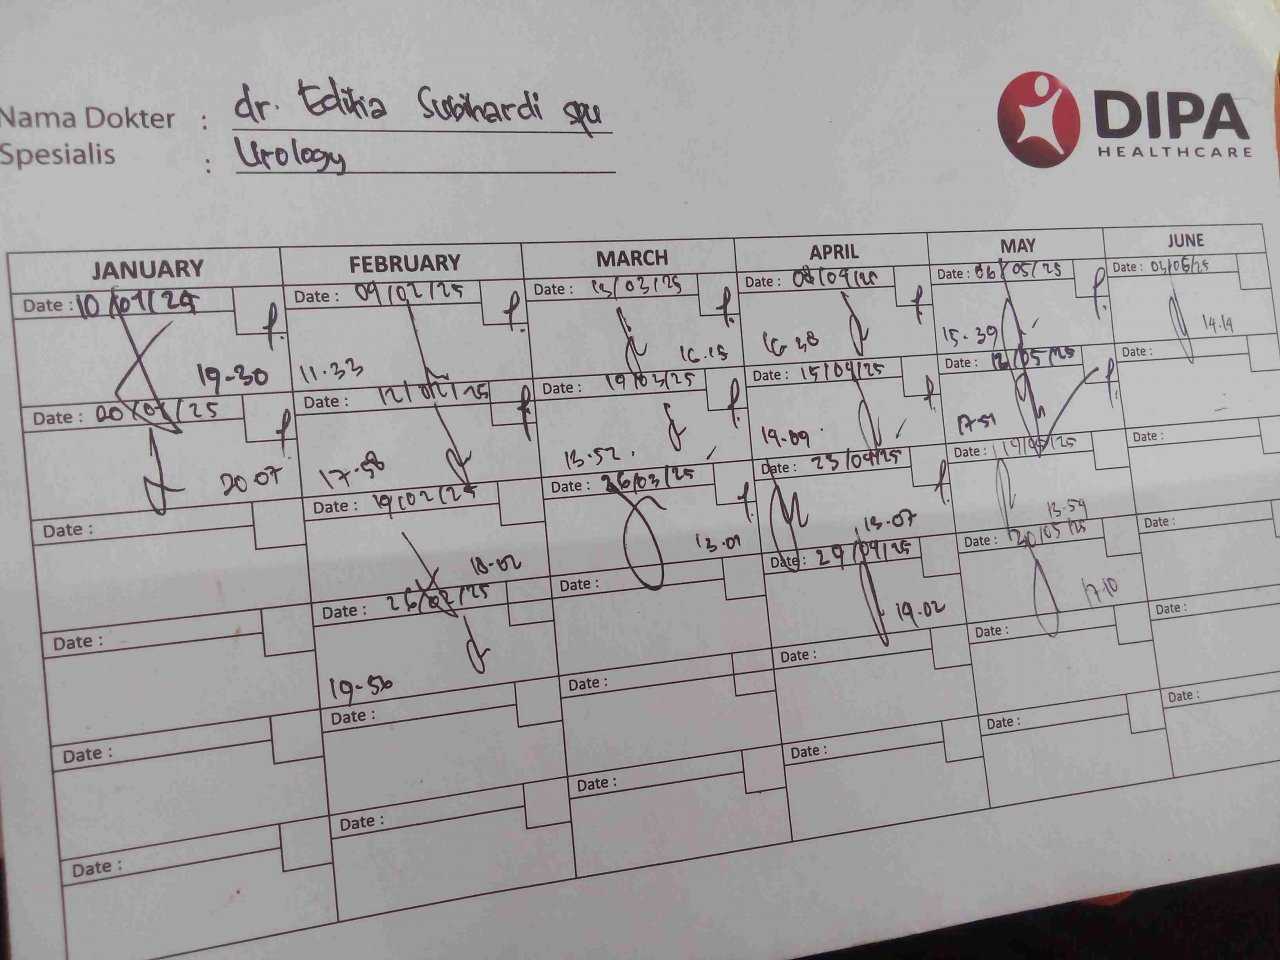 Nama Dokter : dr. Editia Subihardi spu
Spesialis : Urology
DIPA
HEALTHCARE
JANUARY FEBRUARY MARCH APRIL MAY JUNE
Date : 10/01/25 Date : 09/02/25 Date : 13/03/25 Date : 08/04/25 Date : 06/05/25 Date : 03/06/25
19-30 11.33 16.15 16.38 15.39 14.14
Date : 20/01/25 Date : 12/02/25 Date : 19/03/25 Date : 15/04/25 Date : /05/25 Date :
20.07 17-58 13.52. 19.09 17-51
Date : Date : 19/02/25 Date : 26/03/25 Date : 23/04/25 Date : 19/05/25 Date :
18-02 13.01 13.07 13.54
Date : Date : 26/02/25 Date : Date : 29/04/25 Date : 30/05/25 Date :
19-56 19.02 17.10
Date : Date : Date : Date : Date : Date :
Date : Date : Date : Date : Date : Date :